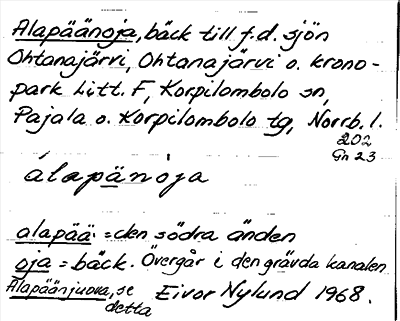 Alapäänoja, bäck till f.d. sjön
Ohtanajärvi, Ohtanajärvi o. krono-
park Litt. F, Korpilombolo sn,
Pajala o. Korpilombolo tg, Norrb. l.
202
Gn 23
álapänòja
alapää: = den södra änden
oja = bäck. Övergår i den grävda kanalen
Alapäänjuova, se
detta
Eivor Nylund 1968.